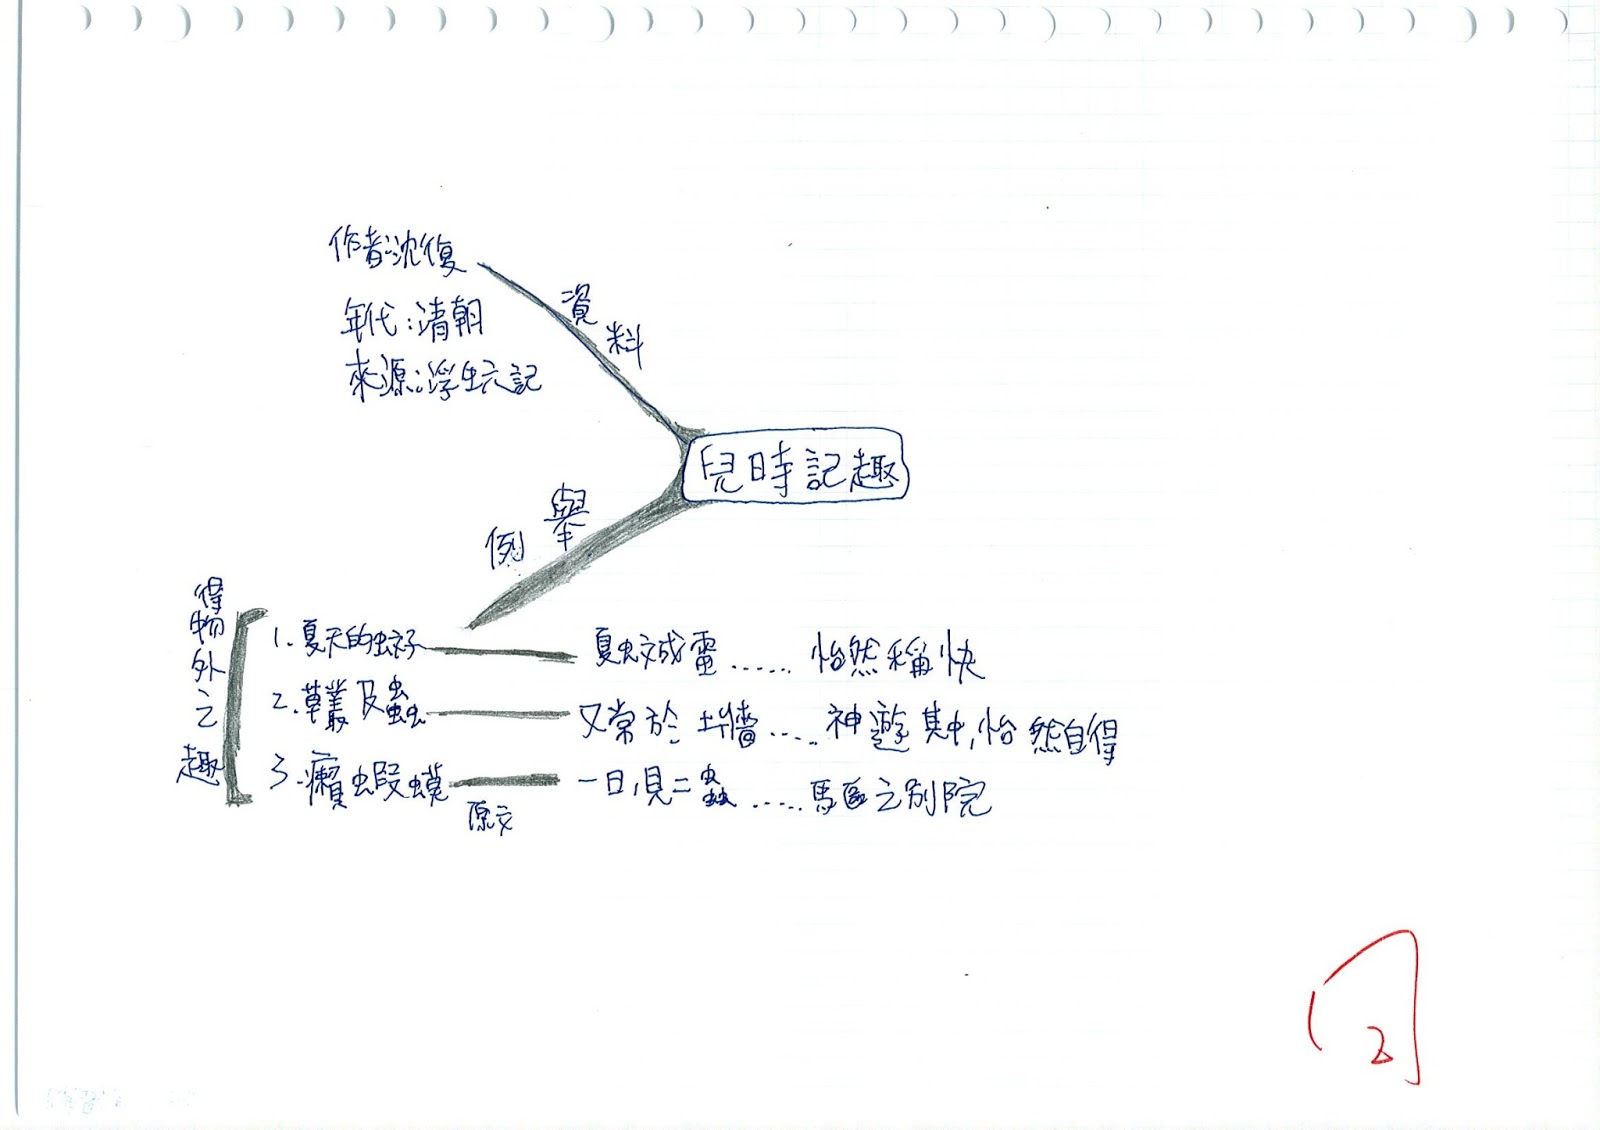 兒時記趣
資料
作者:沈復
年代:清朝
來源:浮生六記
舉例
得物外之趣
1.夏天的蚊子 夏蚊成雷......怡然稱快
2.草叢及蟲 又常於土牆.....神遊其中,怡然自得
3.癩蝦蟆 一日,見二蟲......馬區之別院
原文